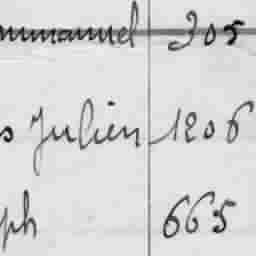 mmanuel 305
s Julien 1206
ph 665